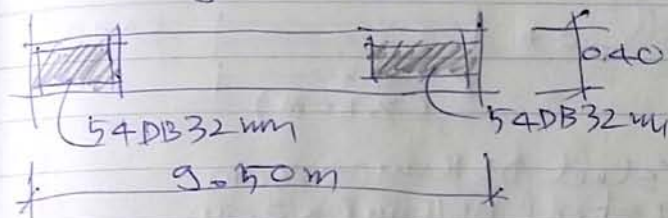 0.40
54DB32mm
54DB32mm
9.50m